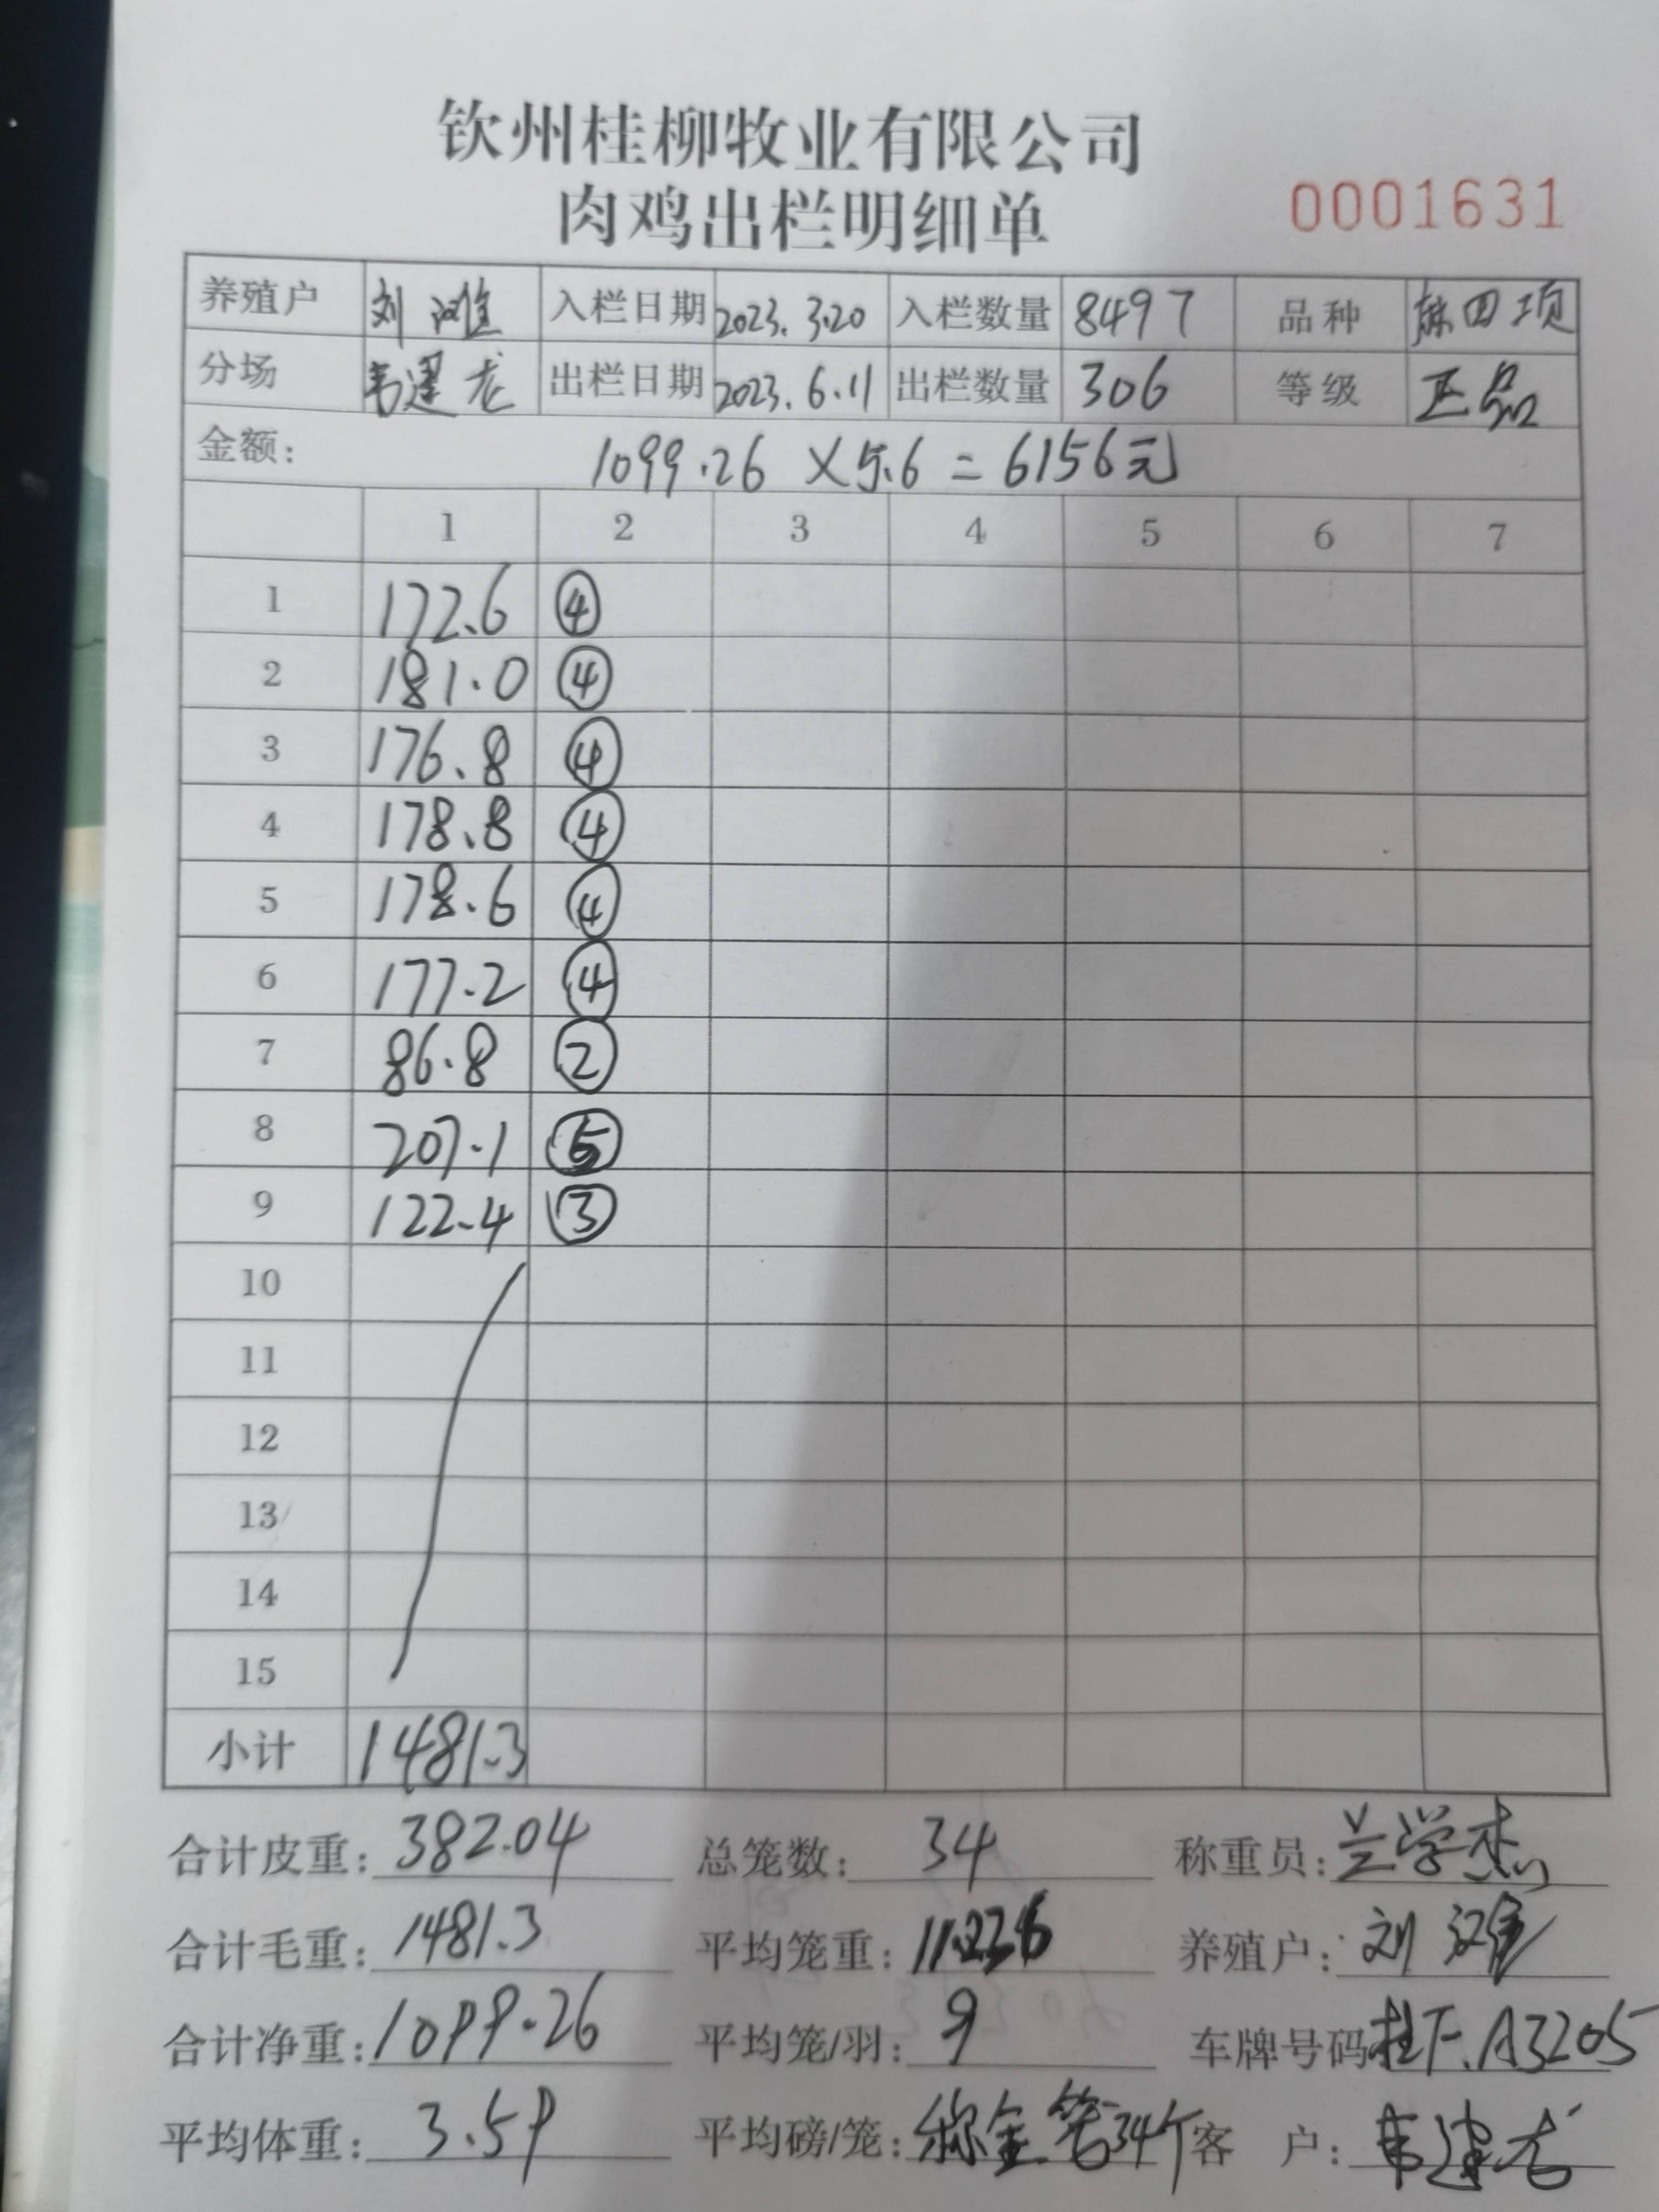 钦州桂柳牧业有限公司
肉鸡出栏明细单 0001631
养殖户 刘 入栏日期 2023.3.20 入栏数量 8497 品种 麻四项
分场 韦建龙 出栏日期 2023.6.11 出栏数量 306 等级 正品
金额: 1099.26 ×5.6 = 6156元
1 2 3 4 5 6 7
1 172.6 ④
2 181.0 ④
3 176.8 ④
4 178.8 ④
5 178.6 ④
6 177.2 ④
7 86.8 ②
8 207.1 ⑤
9 122.4 ③
10
11
12
13
14
15
小计 1481.3
合计皮重: 382.04 总笼数: 34 称重员: 兰学杰
合计毛重: 1481.3 平均笼重: 养殖户: 刘
合计净重: 1099.26 平均笼/羽: 9 车牌号码 桂F.A3205
平均体重: 3.59 平均磅/笼: 称全笼34个 客 户: 韦建龙